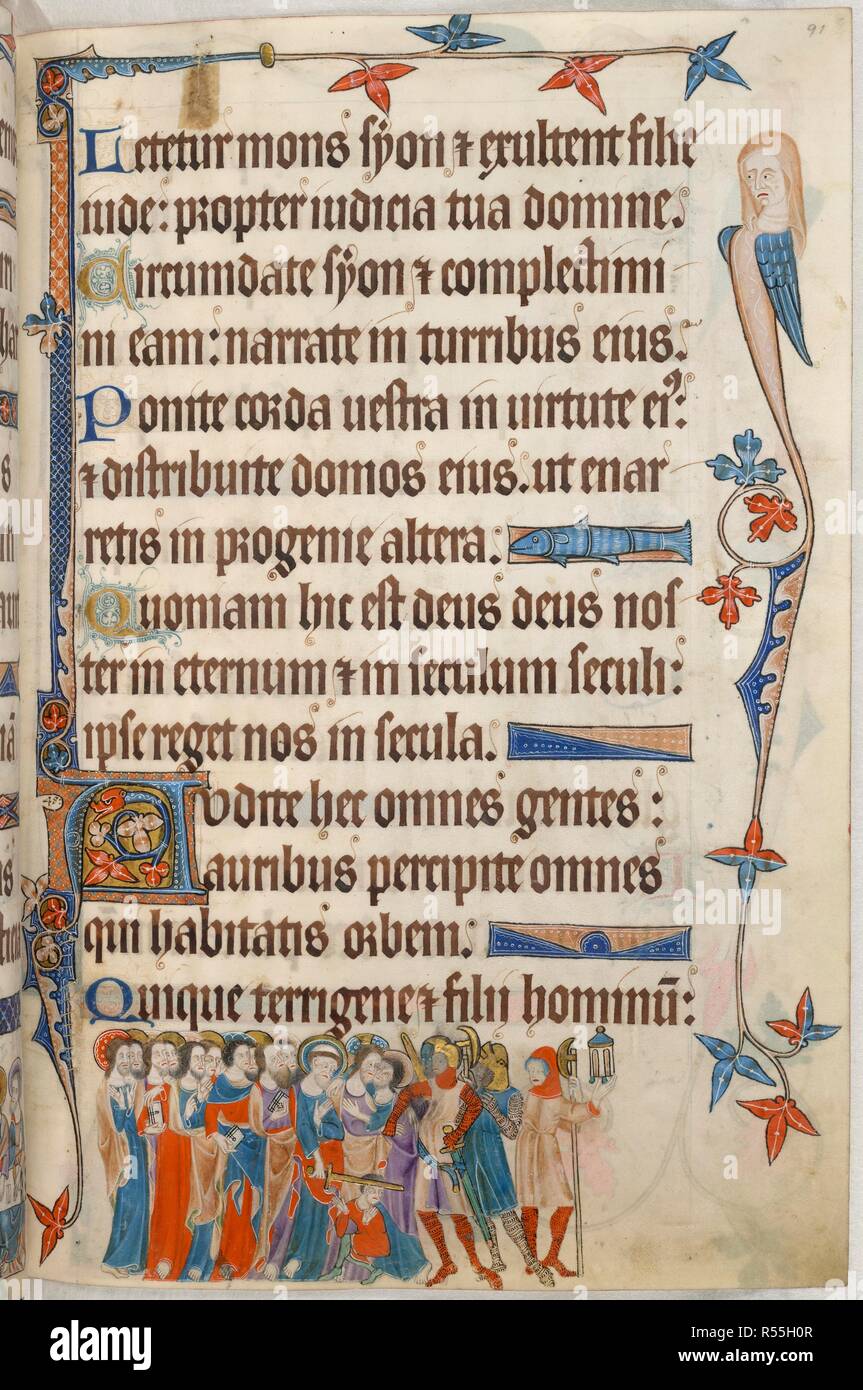 91
Letetur mons syon ⁊ exultent filie
iude: propter iudicia tua domine.
Circumdate syon ⁊ complectimi
ni eam: narrate in turribus eius.
Ponite corda uestra in uirtute eiꝰ:
⁊ distribuite domos eius. ut enar
retis in progenie altera.
Quoniam hic est deus deus nos
ter in eternum ⁊ in seculum seculi:
ipse reget nos in secula.
Audite hec omnes gentes:
auribus percipite omnes
qui habitatis orbem.
Quique terrigene ⁊ filii hominū:
alamy
Image ID: R55H0R
www.alamy.com